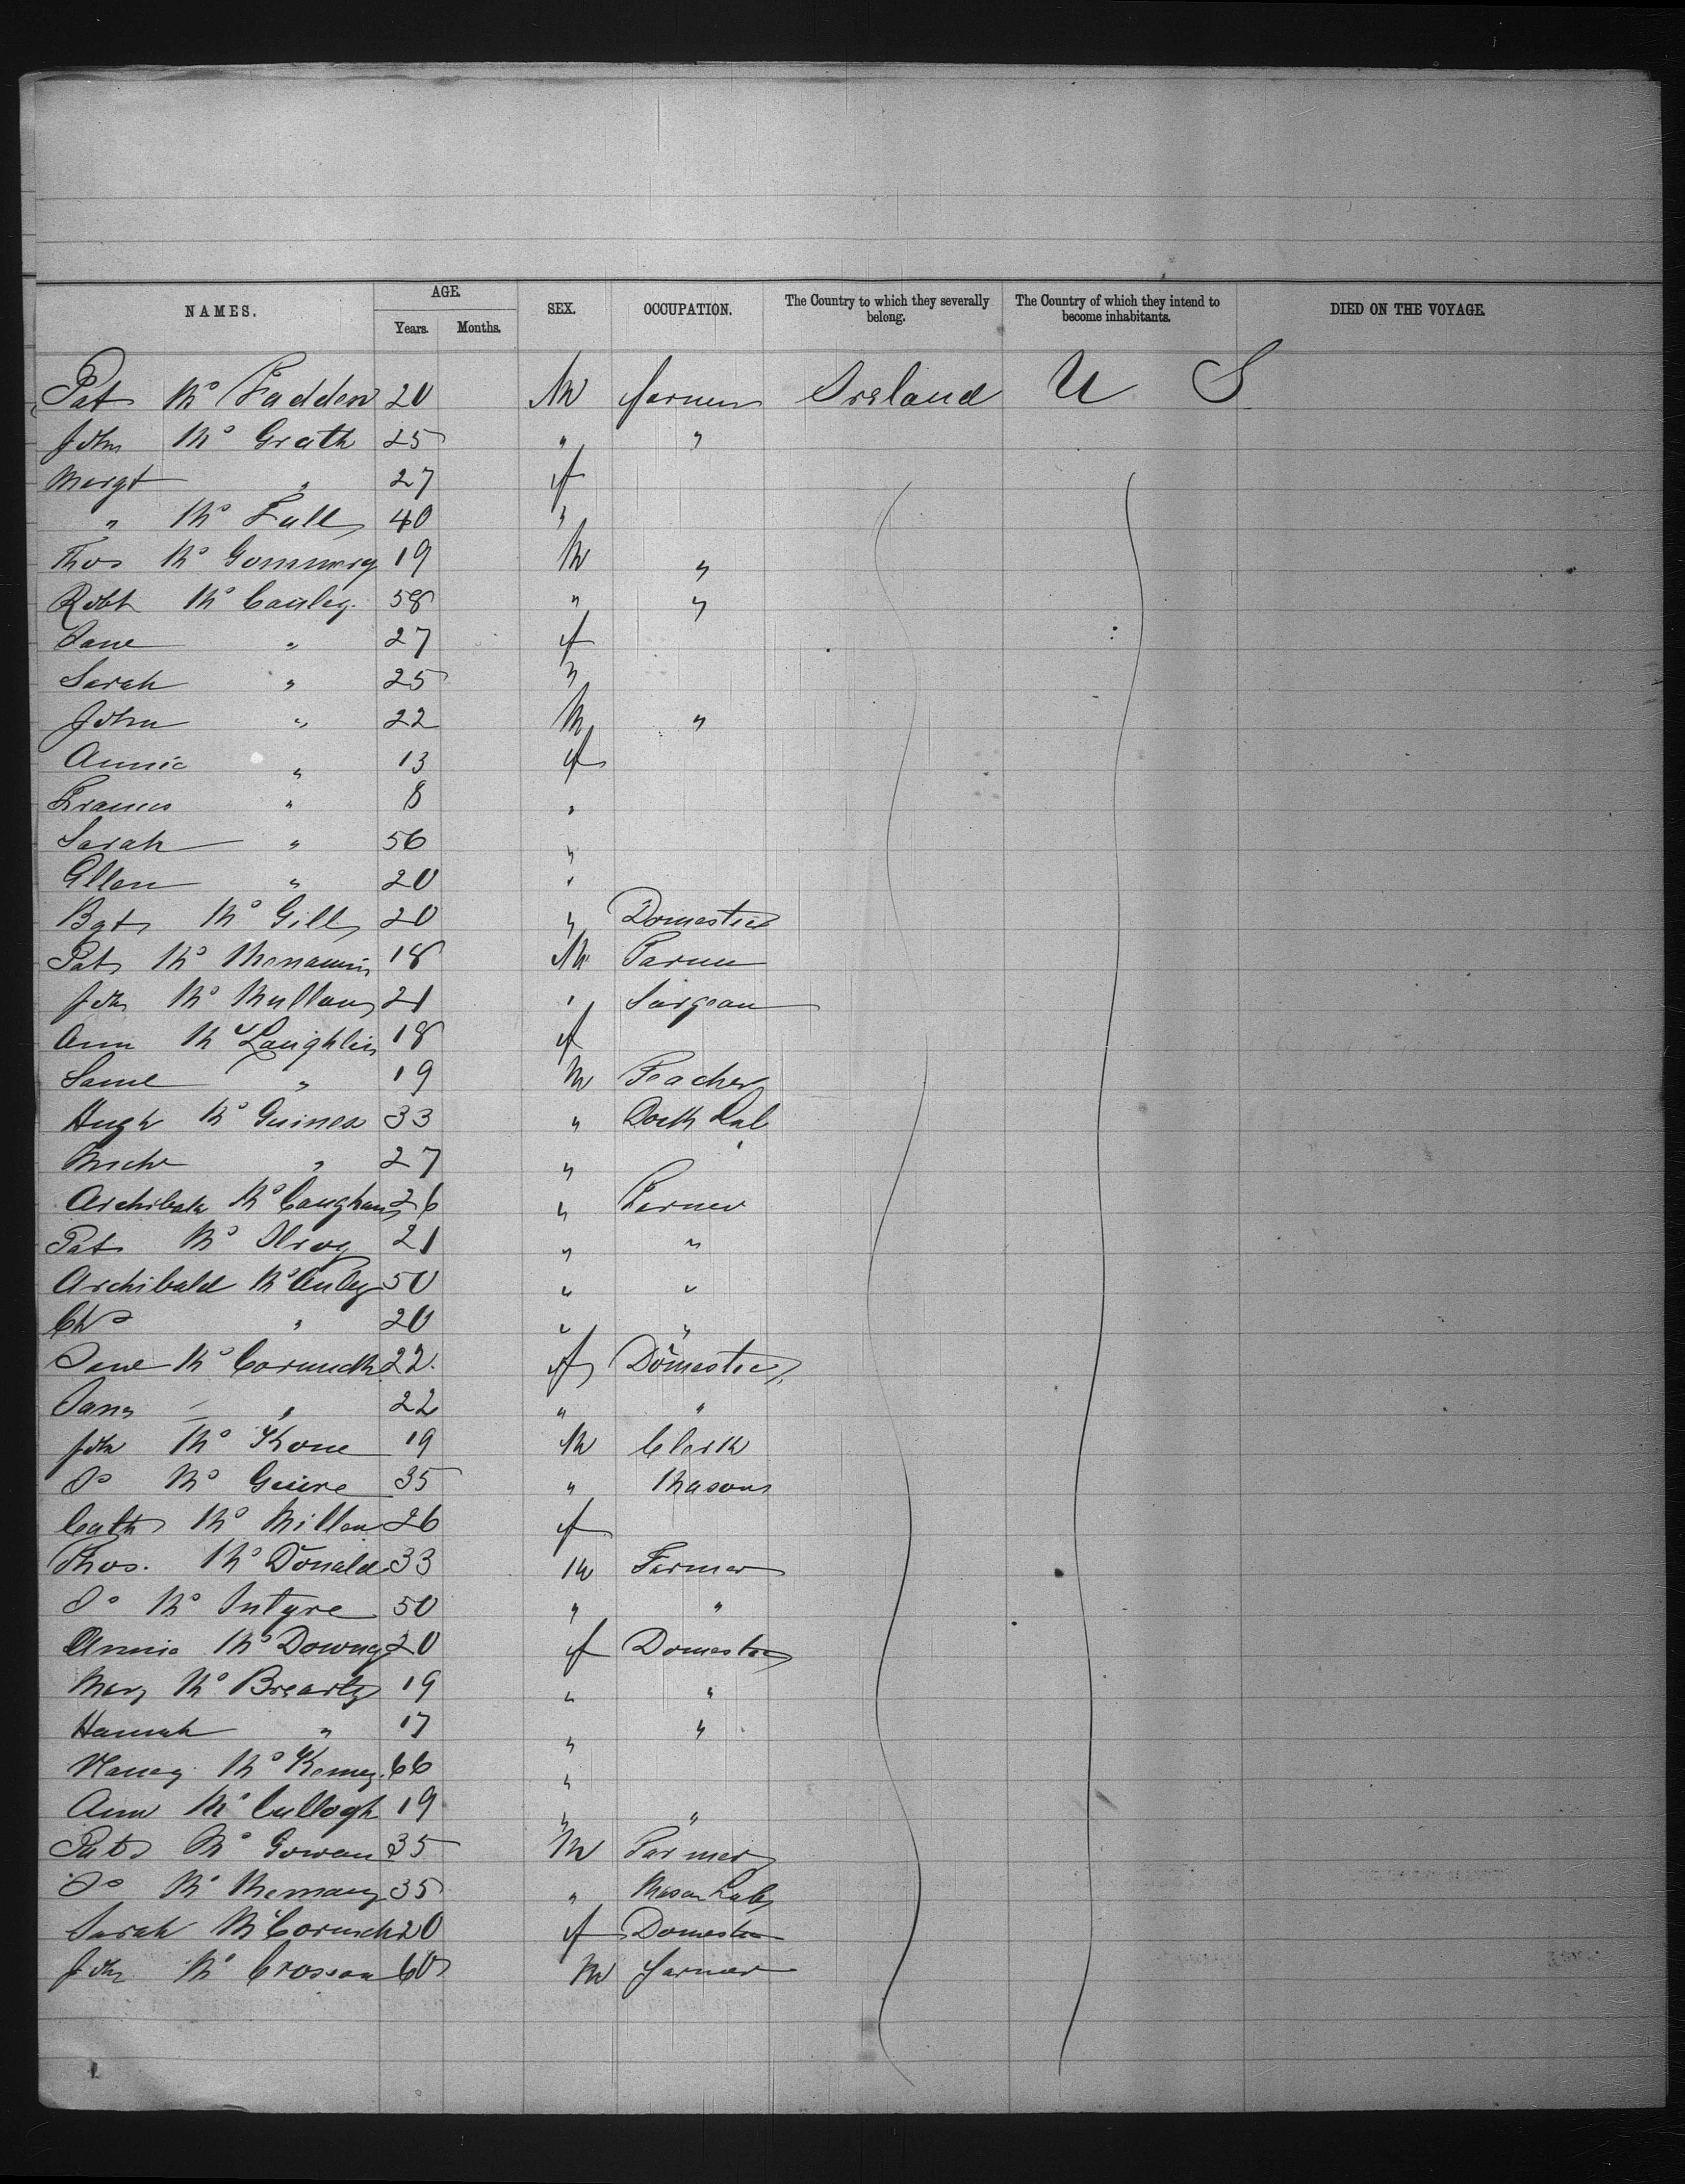 NAMES. AGE. SEX. OCCUPATION. The Country to which they severally belong. The Country of which they intend to become inhabitants. DIED ON THE VOYAGE.
Years. Months.
Pat Mc Fadden 20 M farmer Ireland U S
John Mc Grath 25 " "
Margt " 27 f
" Mc Fall 40 "
Thos Mc 19 M "
Robt Mc Cauley. 58 " "
Jane " 27 f
Sarah " 25 "
John " 22 M "
Annie " 13 f
Frances " 8 "
Sarah " 56 "
Ellen " 20 "
Bgt Mc Gill 20 " Domestic
Pat Mc Menamin 18 M Farmer
John Mc Mullan 21 "
Ann Mc Laughlin 18 f
Saml " 19 M Teacher
Hugh Mc Guines 33 " Dock Lab
" 27 "
Archibald Mc Caughan 26 " Farmer
Pat Mc Ilroy 21 " "
Archibald McAuley 50 " "
" 20 " "
Jane Mc Cormick 22. f Domestic
Jane " 22 " "
John Mc Kone 19 M Clerk
Do Mc Guire 35 " Mason
Cath Mc Millan 26 f
Thos. Mc Donald 33 M Farmer
Do Mc Intyre 50 " "
Annie Mc Downey 20 f Domestic
Mary Mc Brearty 19 " "
Hannah " 17 " "
Nancy Mc 66 "
Ann Mc Cullogh 19 " "
Pat Mc Gowan 35 M Farmer
Do Mc 35 " Mason Lab
Sarah McCormick 20 f Domestic
John Mc Crossan 60 M farmer